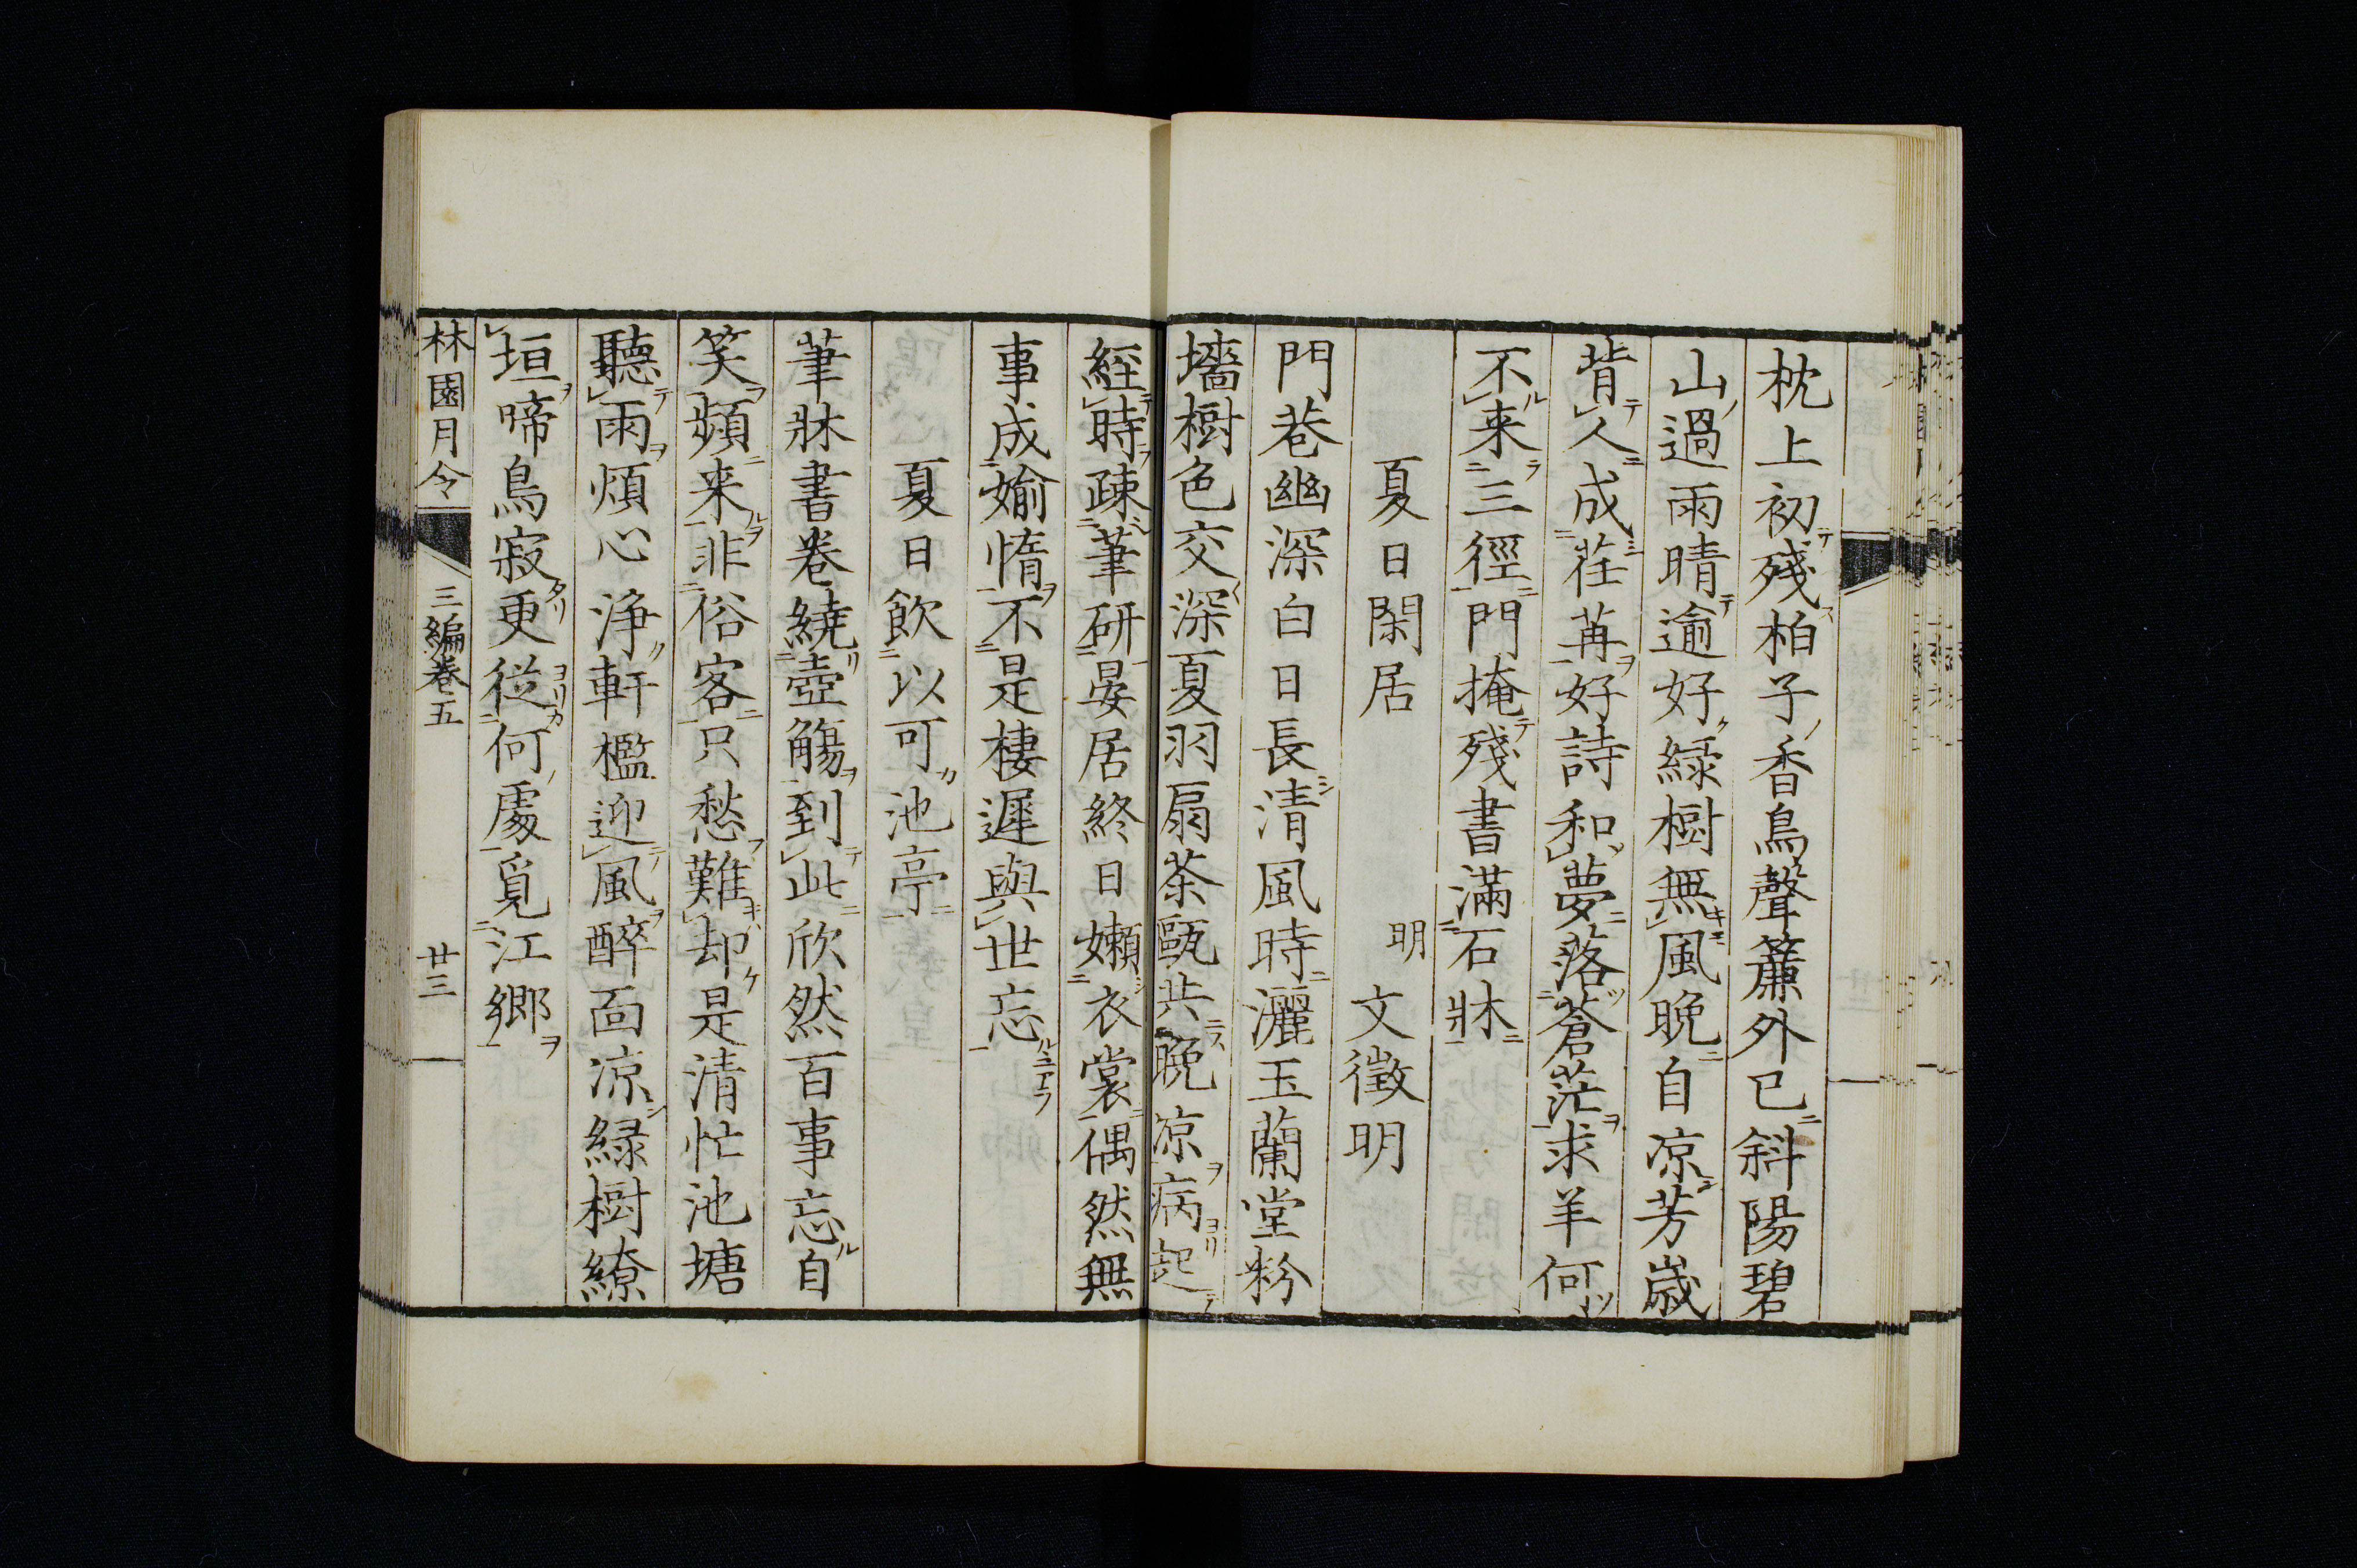 枕上初残柏子香鳥聲簾外已斜陽碧
山過雨晴逾好緑樹無風晩自凉芳歳
背人成荏苒好詩和夢落蒼茫求羊何
不来三徑門掩残書滿石牀
夏日閑居
明文徵明
門巷幽深白日長清風時灑玉蘭堂粉
墻樹色交深夏羽扇茶甌共晩凉病起
経時疎筆研晏居終日嬾衣裳偶然無
事成媮惰不是棲遲與世忘
夏日飲以可池亭
筆牀書巻繞壺觴到此欣然百事忘自
笑頻来非俗客只愁難却是清忙池塘
聽雨煩心淨軒檻迎風醉面凉緑樹繚
垣啼鳥寂更從何處覓江郷
林園月令
三編巻五
廿三